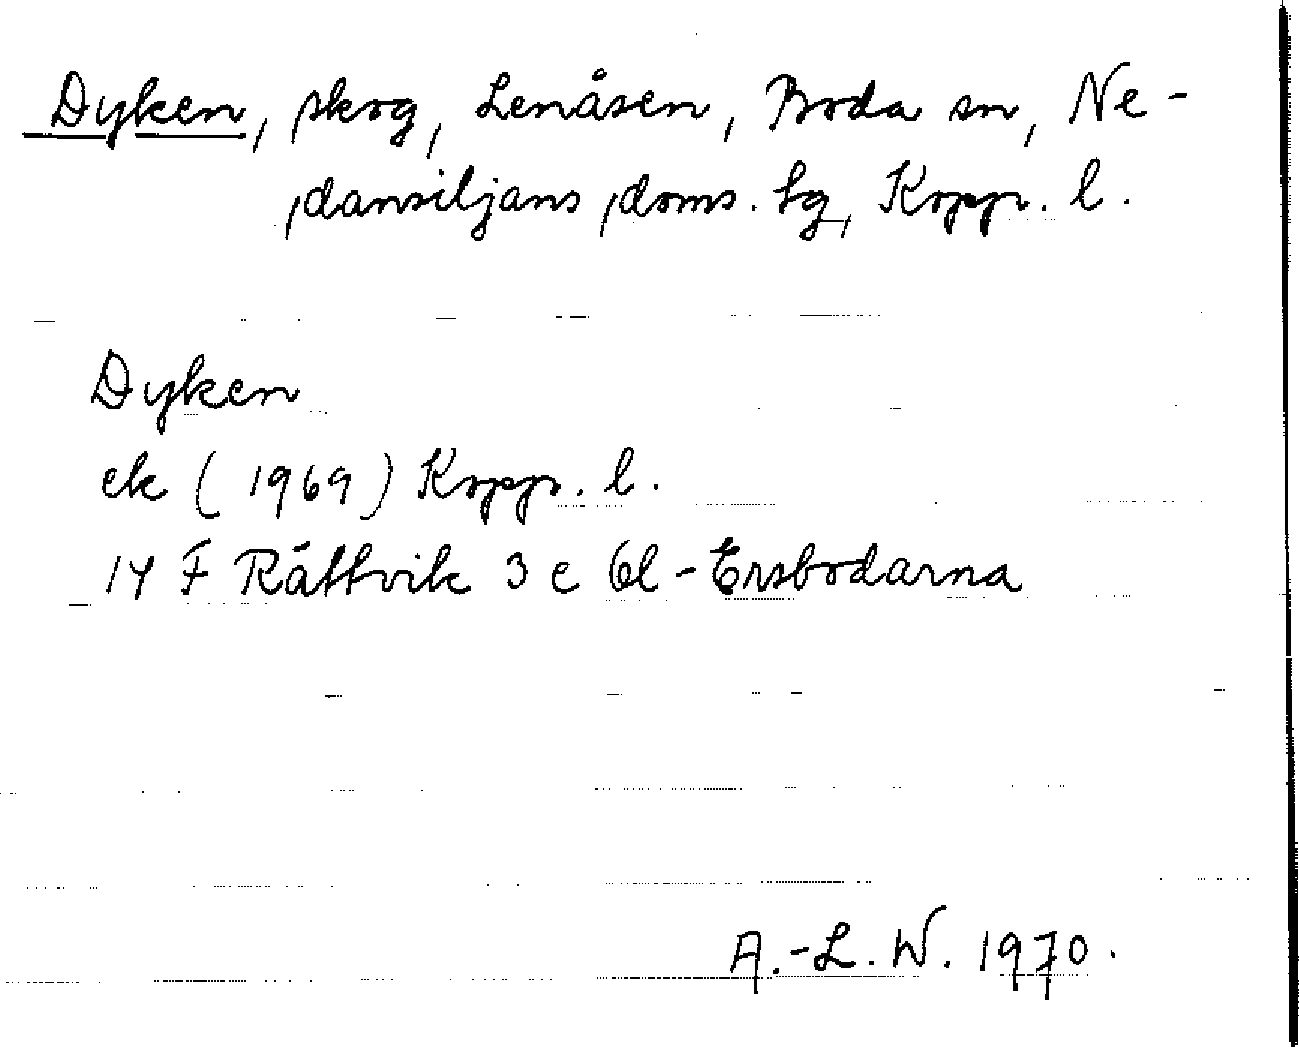 Dyken, skog, Lenåsen, Boda sn, Ne-
dansiljans doms. lg, Kopp. l.
Dyken
ek (1969) Kopp. l.
14 F Rättvik 3 c Ol-Ersbodarna
A.-L. W. 1970.